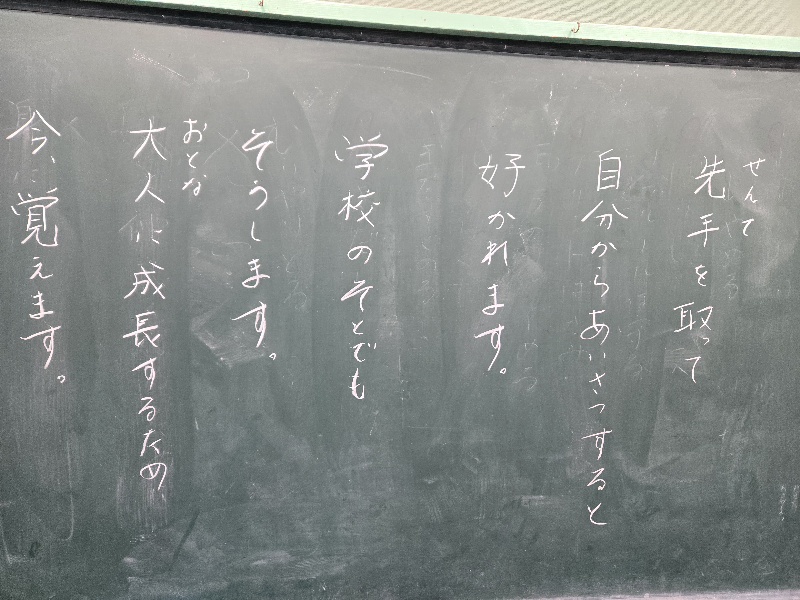 せんて
先手を取って
自分からあいさつすると
好かれます。
学校のそとでも
そうします。
おとな
大人に成長するため、
今、覚えます。